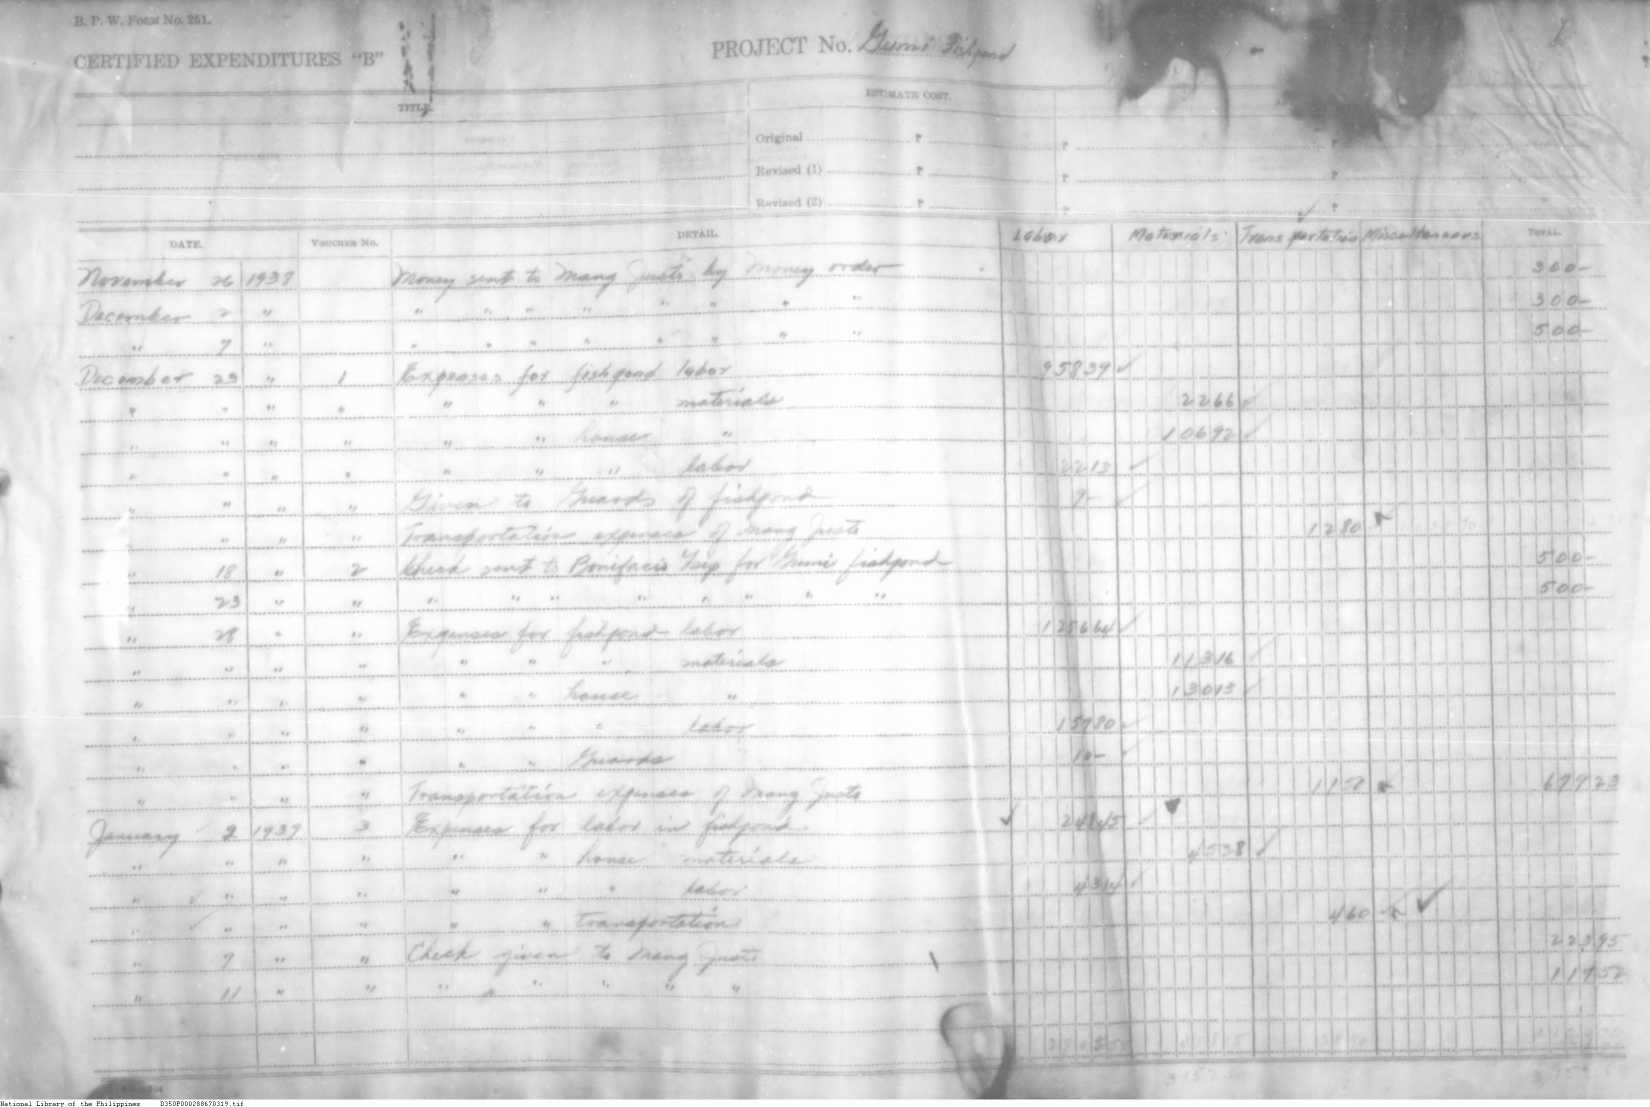 B. P. W. Form No. 251.
CERTIFIED EXPENDITURES "B"
PROJECT No. Gumi Fishpond
TITLE.
ESTIMATE COST.
Original P P P
Revised (1) P P P
Revised (2) P P P
DATE. VOUCHER No. DETAIL. Labor Materials Transportation Miscellaneous TOTAL.
November 26 1937 Money sent to Mang Justo by money order 300-
December 2 " " " " " " " " " 300-
" 7 " " " " " " " " " 500-
December 23 " 1 Expenses for fishpond labor 95839
" " " " " " " materials 2266
" " " " " " house " 10692
" " " " " " " labor 2213
" " " " Given to Guards of fishpond 9-
" " " " Transportation expenses of Mang Justo 1280
" 18 " 2 Check sent to Bonifacio for Gumi fishpond 500-
" 23 " " " " " " " " " " 500-
" 28 " " Expenses for fishpond labor 128664
" " " " " " " materials 11316
" " " " " " house " 13013
" " " " " " " labor 15780
" " " " " " Guards 10-
" " " " Transportation expenses of Mang Justo 69923
January 2 1937 3 Expenses for labor in fishpond
" " " " " " house materials 4538
" " " " " " " labor 4314
" " " " " " transportation 460
" 7 " " Check given to Mang Justo 22395
" 11 " " " " " " " " 11952
National Library of the Philippines D350P000288670319.tif